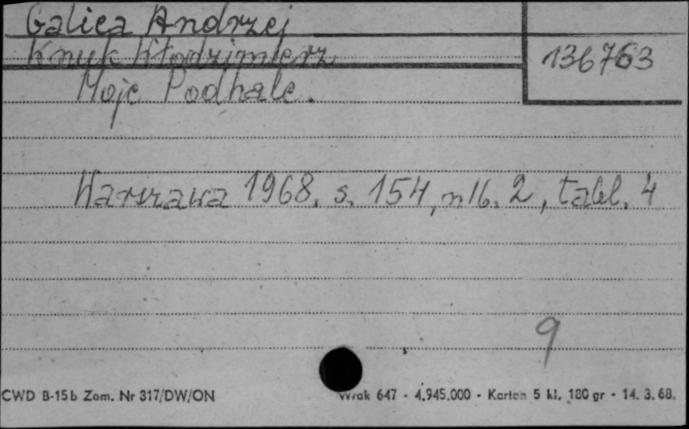 Galica Andrzej
Knyk Włodzimierz
136763
Moje Podhale.
Warszawa 1968. s. 154, nlb. 2, tabl. 4
9
CWD B-15b Zam. Nr 317/DW/ON
647 - 4.945.000 - Karton 5 kl. 180 gr - 14. 3. 68.